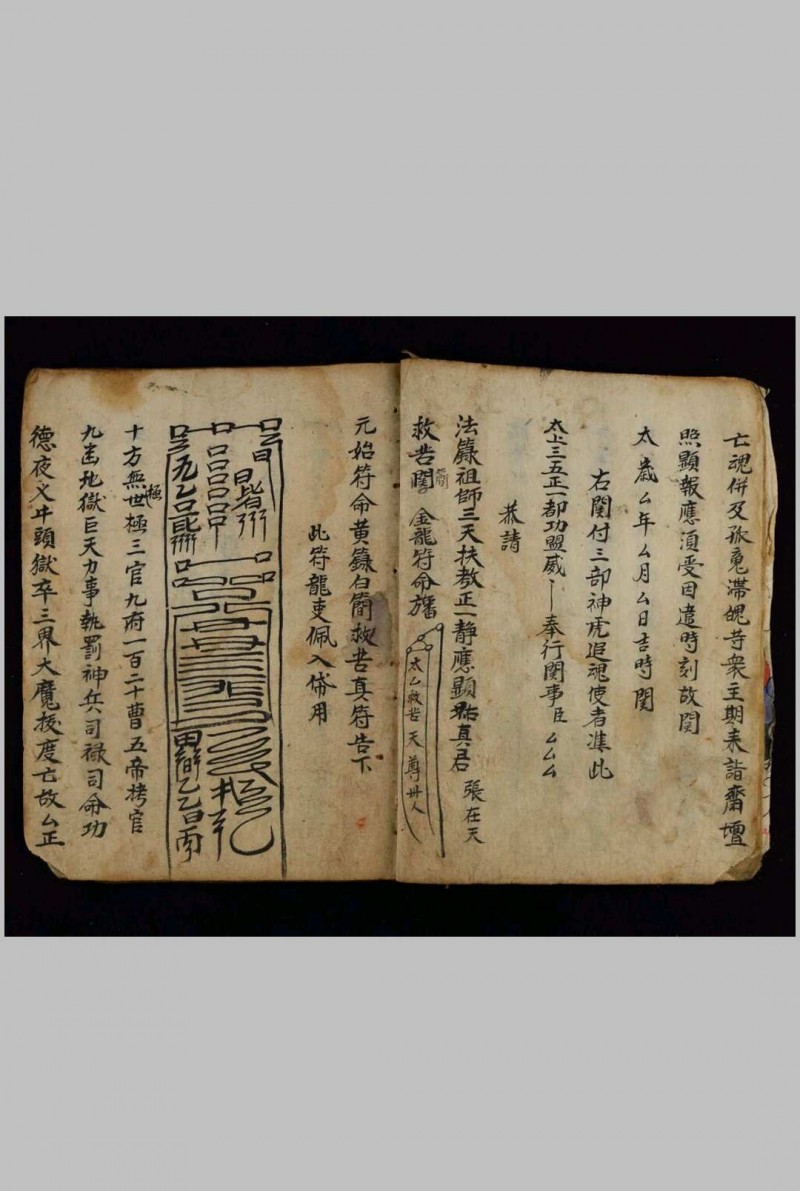 亡魂併及孤魂滯魄等衆主期来詣齋壇
照顯報應須受因遣時刻故関
太歲厶年厶月厶日吉時関
右関付三部神虎追魂使者准此
太上三五正一都功盟威丨奉行関事臣厶厶厶
恭請
法籙祖師三天扶教正一静應顯祐真君 張在天
救苦関 金龍符命旛
太乙救苦天尊卄人
元始符命黄籙白簡救苦真符告下
此符龍吏佩入俻用
十方無世極三官九府一百二十曹五帝栲官
極
九幽地獄巨天力事執罰神兵司禄司命功
德夜义牛頭獄卒三界大魔拔度亡故厶正